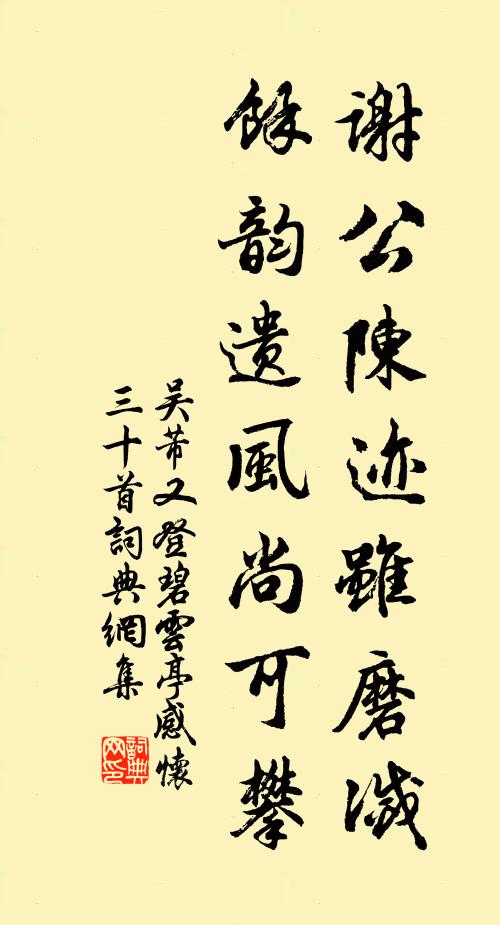 謝公陳迹雖磨滅
餘韵遺風尚可攀
吴芾又登碧雲亭感懷
三十首詞典網集
詞典
网印